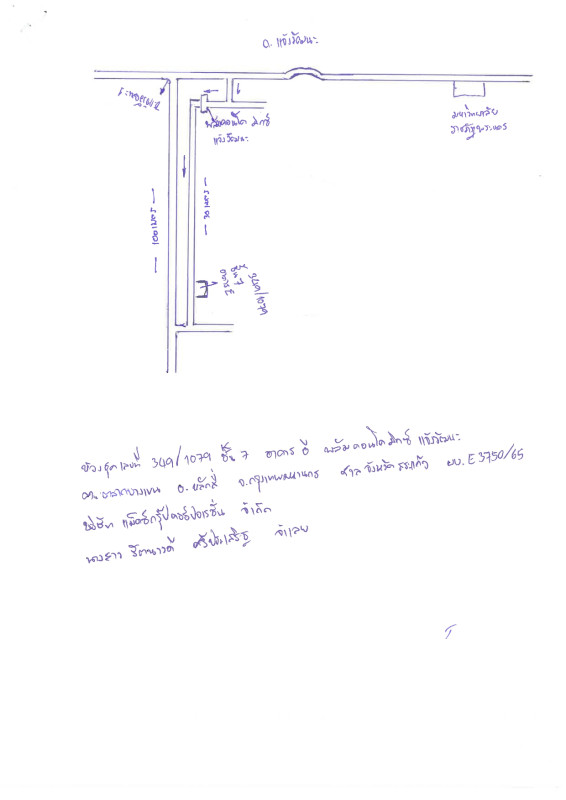 ถ. แจ้งวัฒนะ
มหาวิทยาลัย
ราชภัฏพระนคร
พลัมคอนโด มิกซ์
แจ้งวัฒนะ
100 เมตร
70 เมตร
349/1079
ชั้น 7
อาคาร
ห้องชุดเลขที่ 349/1079 ชั้น 7 อาคาร อี พลัมคอนโด มิกซ์ แจ้งวัฒนะ
ต. ตลาดบางเขน อ. หลักสี่ จ. กรุงเทพมหานคร ศาล จังหวัด สระแก้ว ผบ. E 3750/65
บริษัท แม็กซ์กรุ๊ปคอร์ปอเรชั่น จำกัด
นางสาว จำเลย